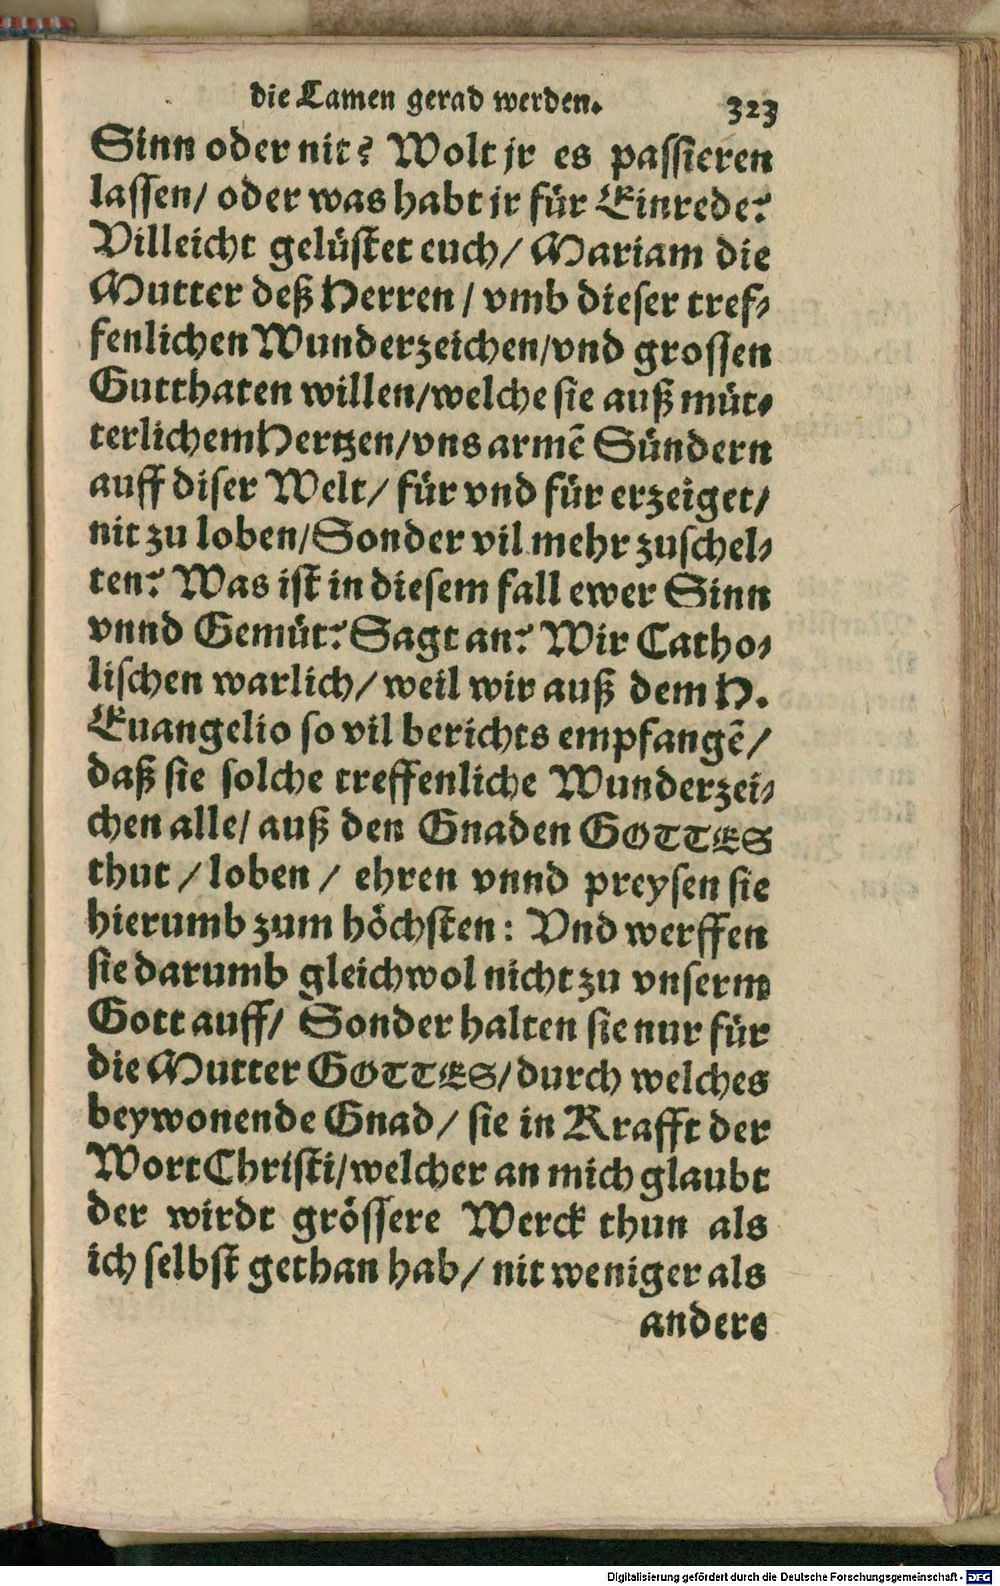 die Lamen gerad werden. 323
Sinn oder nit? Wolt jr es passieren
lassen/ oder was habt jr für Einrede?
Villeicht gelüstet euch/ Mariam die
Mutter deß Herren / vmb dieser tref-
fenlichen Wunderzeichen/vnd grossen
Gutthaten willen/welche sie auß müt-
terlichem Hertzen/vns armē Sündern
auff diser Welt/ für vnd für erzeiget/
nit zu loben/Sonder vil mehr zuschel-
ten? Was ist in diesem fall ewer Sinn
vnnd Gemüt? Sagt an? Wir Catho-
lischen warlich/ weil wir auß dem H.
Euangelio so vil berichts empfangē/
daß sie solche treffenliche Wunderzei-
chen alle/ auß den Gnaden GOTTES
thut / loben / ehren vnnd preysen sie
hierumb zum höchsten: Vnd werffen
sie darumb gleichwol nicht zu vnserm
Gott auff/ Sonder halten sie nur für
die Mutter GOTTES/durch welches
beywonende Gnad/ sie in Krafft der
Wort Christi/welcher an mich glaubt
der wirdt grössere Werck thun als
ich selbst gethan hab/ nit weniger als
andere
Digitalisierung gefördert durch die Deutsche Forschungsgemeinschaft - DFG